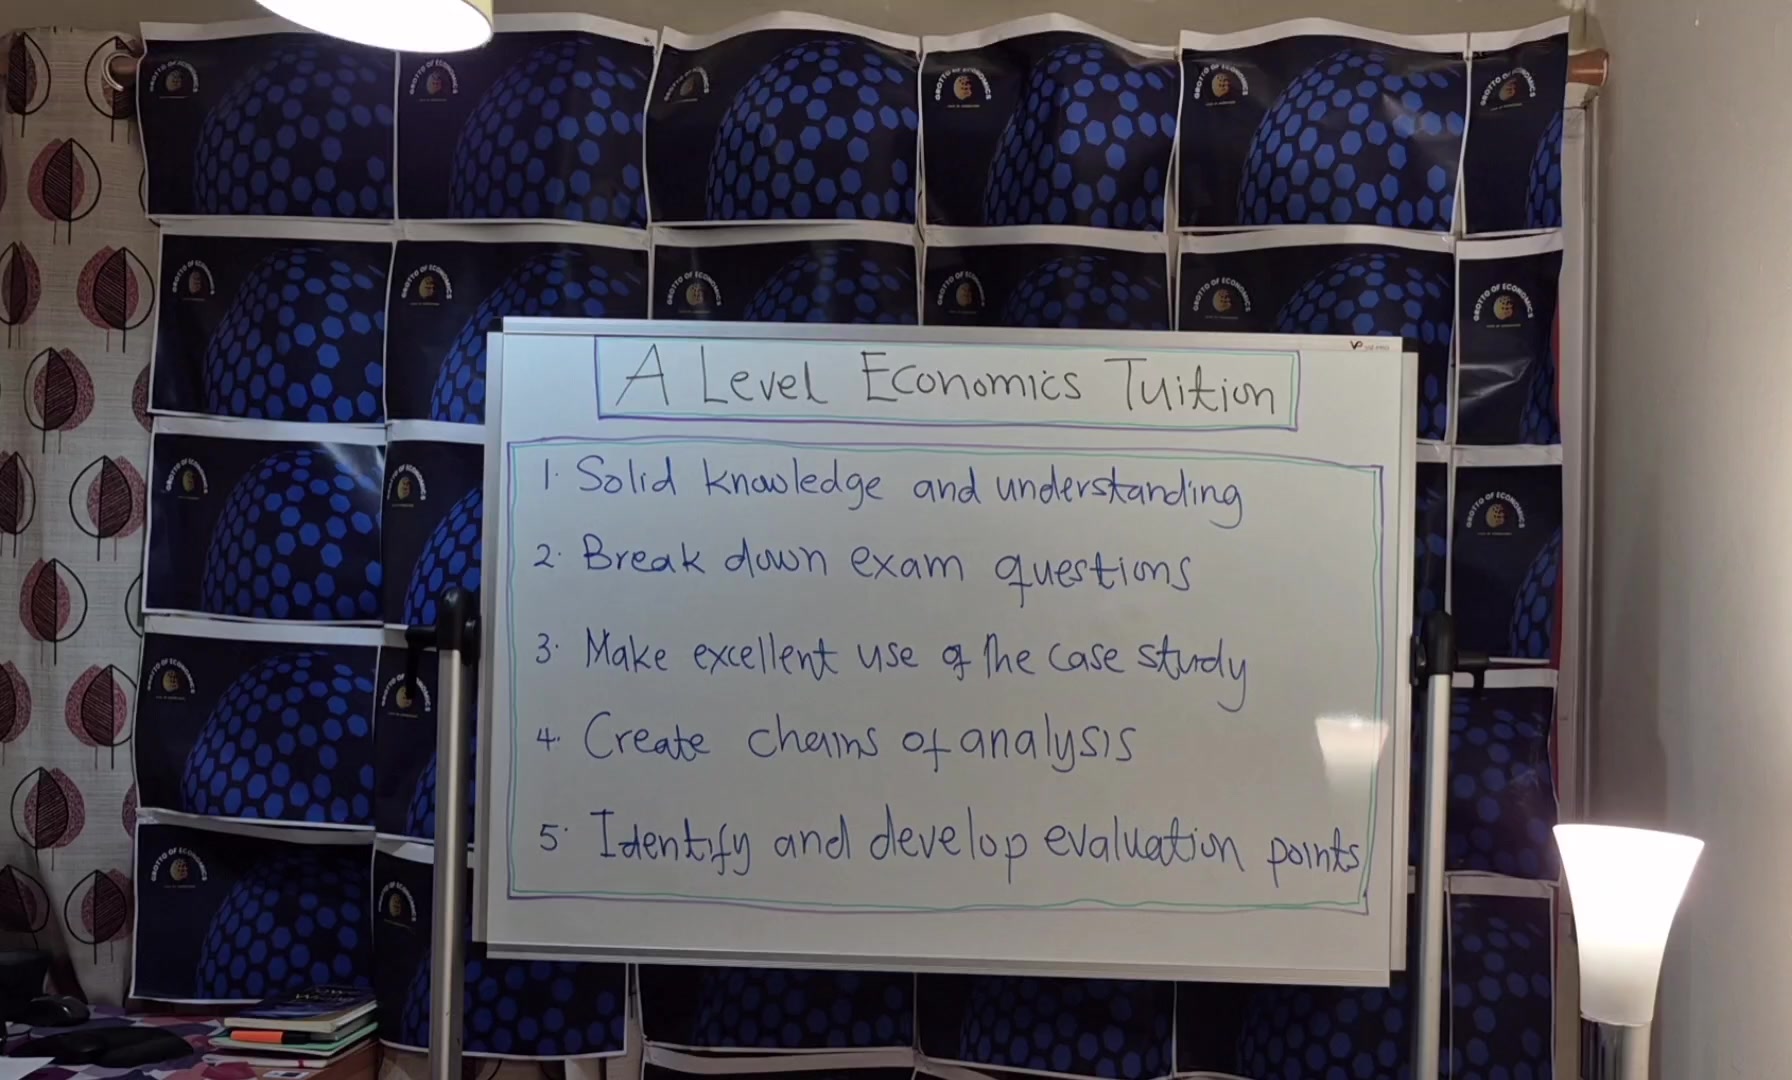 GROTTO OF ECONOMICS
A Level Economics Tuition
1. Solid knowledge and understanding
2. Break down exam questions
3. Make excellent use of the case study
4. Create chains of analysis
5. Identify and develop evaluation points